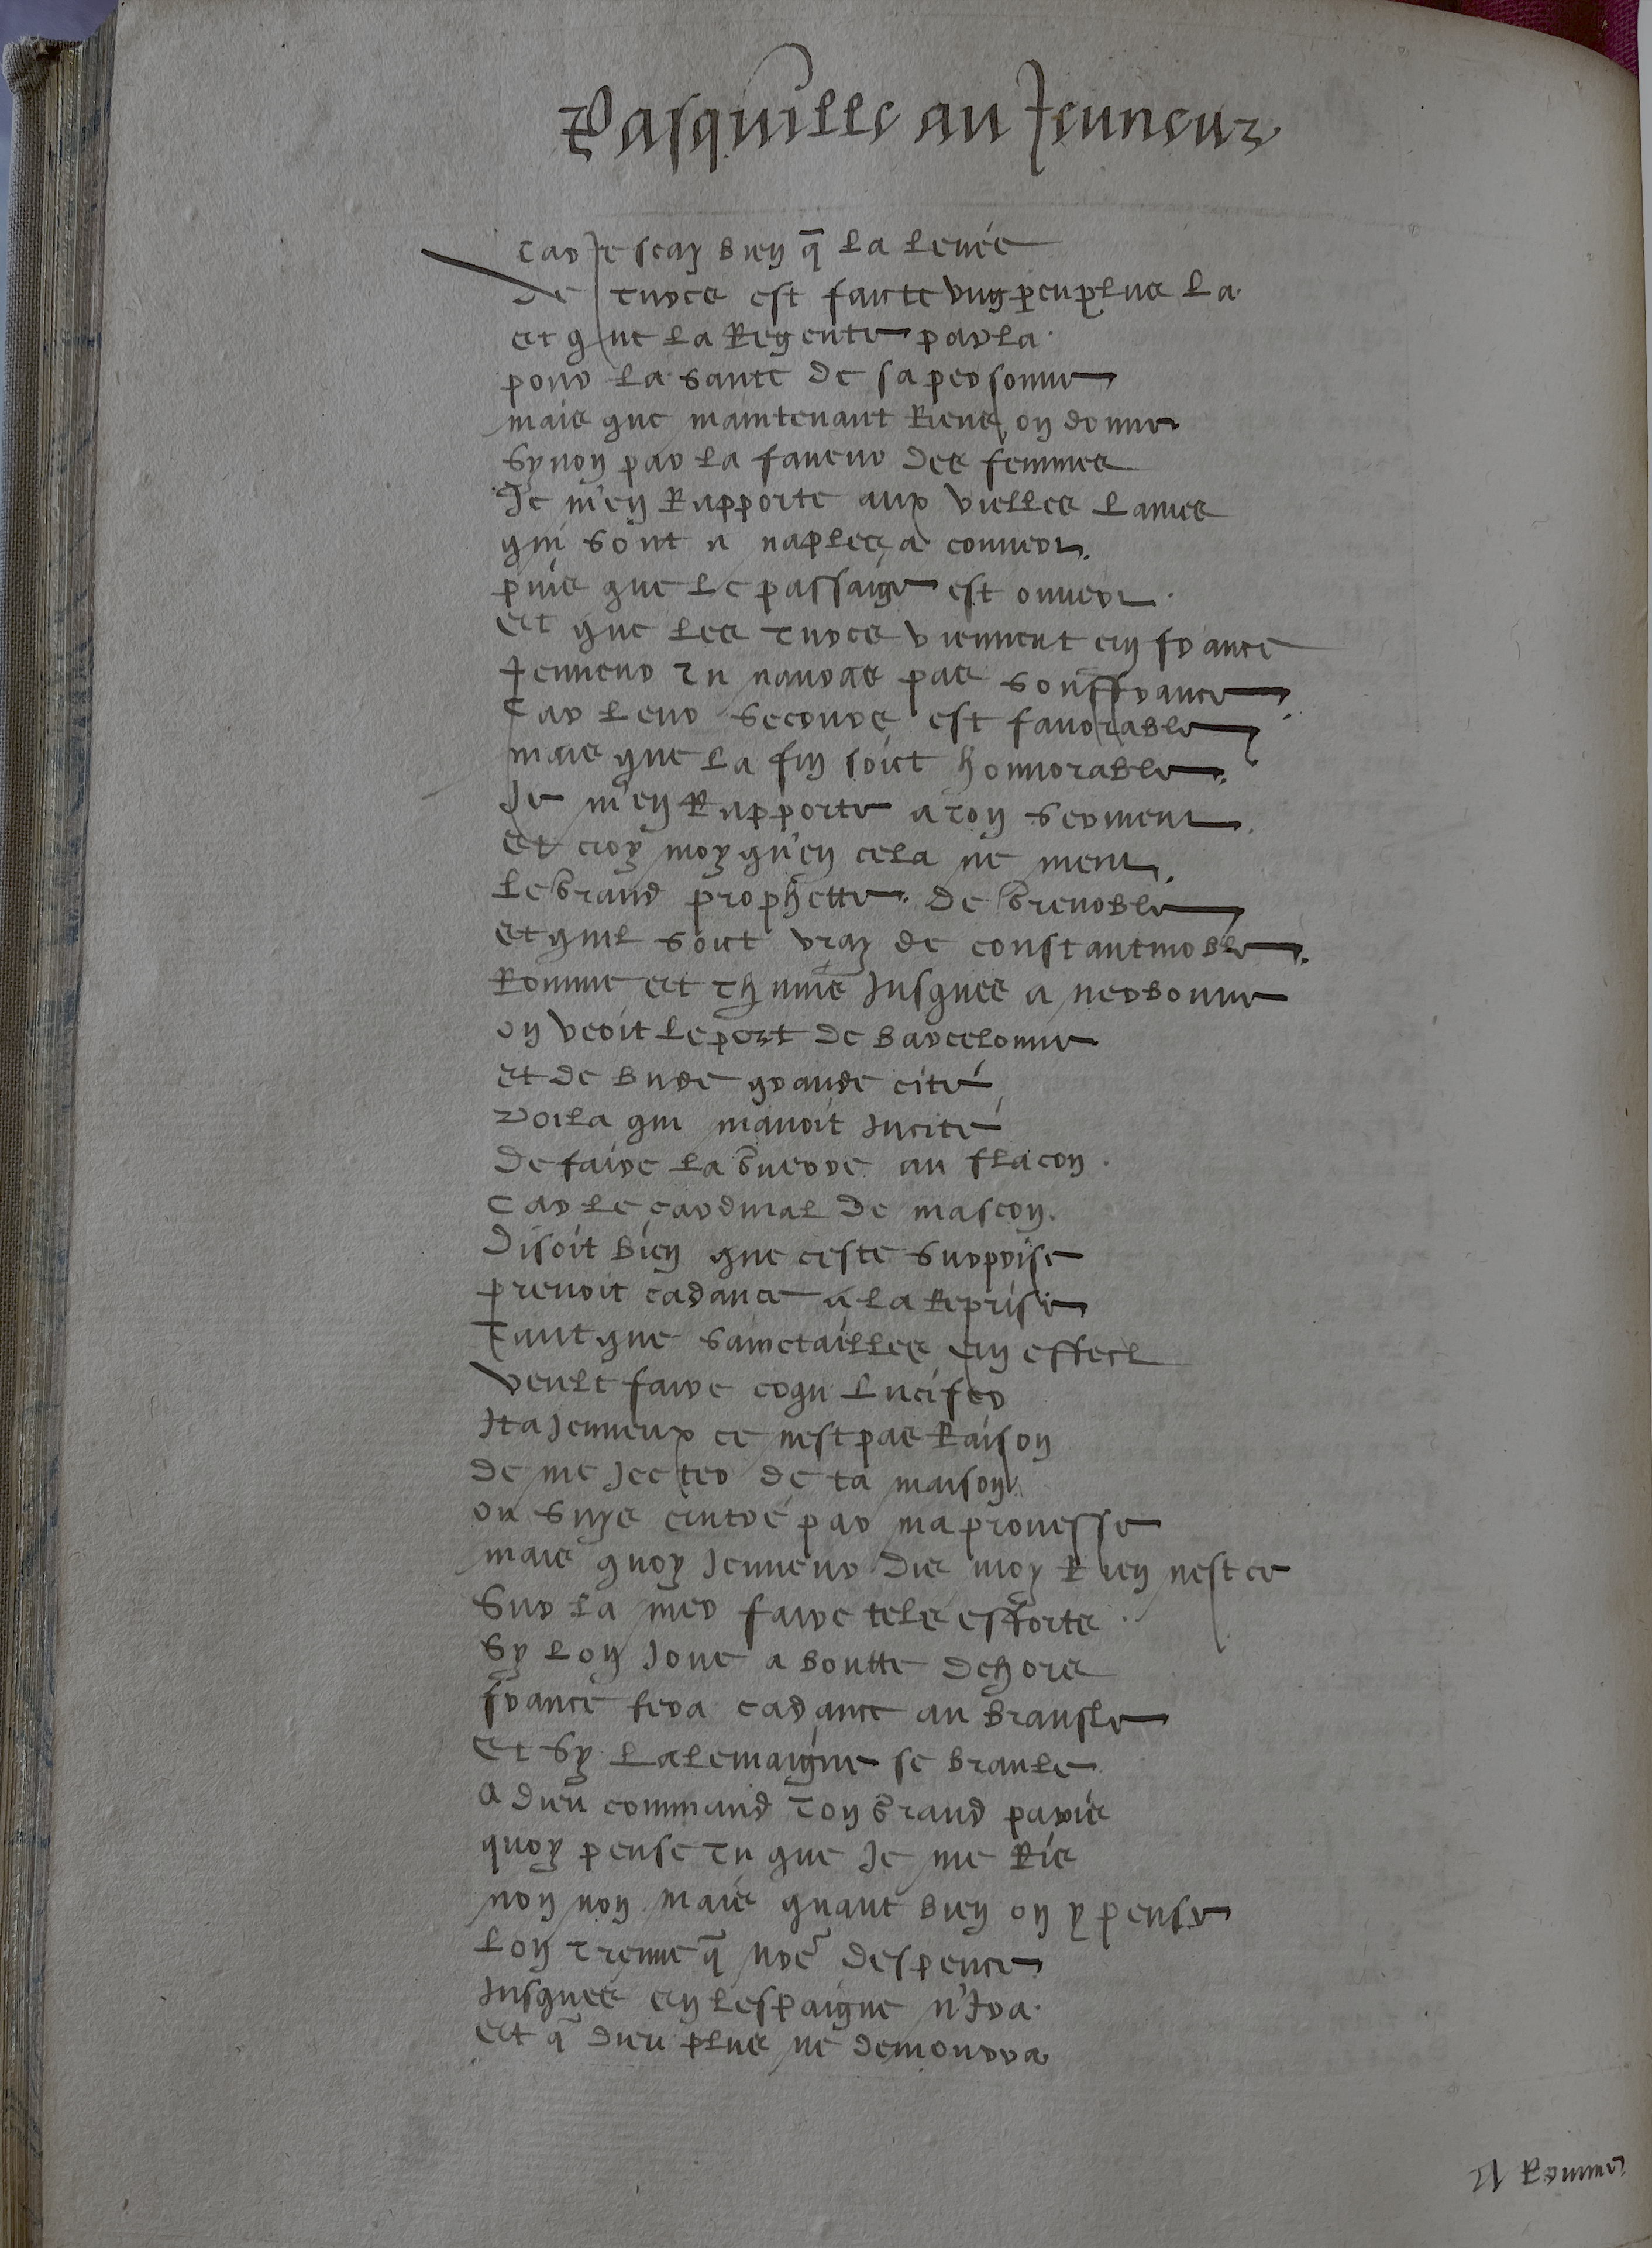 Pasquille au Jeuneur
Car Je scay bien q̃ la levée
De turcs est faicte ung peu plus la
et que la Regente parla
pour la sante de sa personne
mais que maintenant Riens on donne
Synon par la faveur des femmes
Je m'en Rapporte aux vielles lames
qui sont a naples a couvert
puis que le passaige est ouvert
et que les turcs viennent en france
Jeuneur tu nauras pas souffrance
Car leur secours est favorable
mais que la fin soict honnorable
Je m'en Rapporte a ton serment
et croy moy qu'en cela ne ment
le grand prophette de grenoble
et quil soict vray de constantinoble
Romme et Thunis Jusques a nerbonne
on veoit le port de barcelonne
et de bude grande cité
Voila qui mavoit Incité
De faire la guerre au flacon
Car le cardinal de mascon
Disoit bien que ceste surprise
prenoit cadance a la Reprise
Tant que sainctailles en effect
veult faire cogu lucifer
Ita Jeuneux ce nest pas Raison
de me Jecter de ta maison
ou suys entré par ma prouesse
mais quoy Jeuneur dis moy Rien nest ce
Sur la mer faire telz effortz
Sy lon Joue a boutte dehors
france fera cadance au bransle
Et sy lalemaigne se branle
A dieu command ton grand paris
quoy pense tu que Je me Ris
non non mais quant bien on y pense
lon treuve q̃ nr̃e despence
Jusques en lespaigne n'Ira
et q̃ dieu plus ne demourra
A Romme